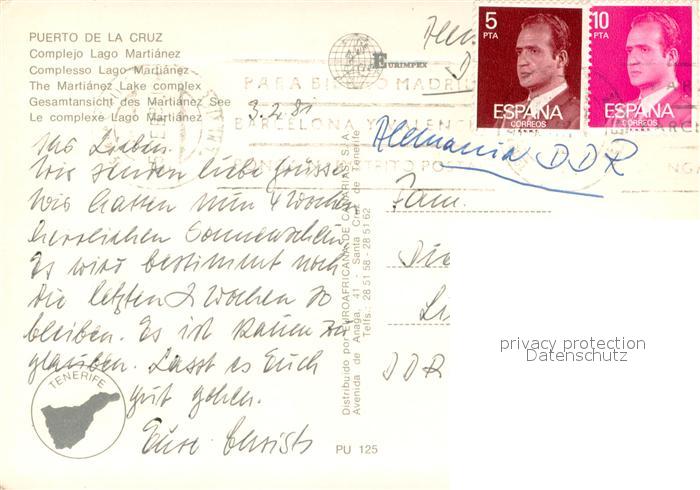 PUERTO DE LA CRUZ
Complejo Lago Martiánez
Complesso Lago Martiánez
The Martiánez Lake complex
Gesamtansicht des Martiánez See
Le complexe Lago Martiánez
EURIMPEX
5
PTA
ESPAÑA
CORREOS
10
PTA
ESPAÑA
CORREOS
PARA BILBAO MADRID
BARCELONA Y VALENCIA
DISTRITO POSTAL
3.2.81
Ihr Lieben.
Wir senden liebe Grüsse
Wir hatten nun 4 Wochen
herrlichen Sonnenschein
Es wird bestimmt noch
die letzten 2 Wochen so
bleiben. Es ist kaum zu
glauben. Lasst es Euch
gut gehen.
Eure
TENERIFE
Distribuido por EUROAFRICANA DE CANARIAS, S.A.
Avenida de Anaga, 41 - Santa Cruz de Tenerife
Telfs.: 28 51 58 - 28 51 62
PU 125
Alemania DDR
Fam.
Li
DDR
privacy protection
Datenschutz